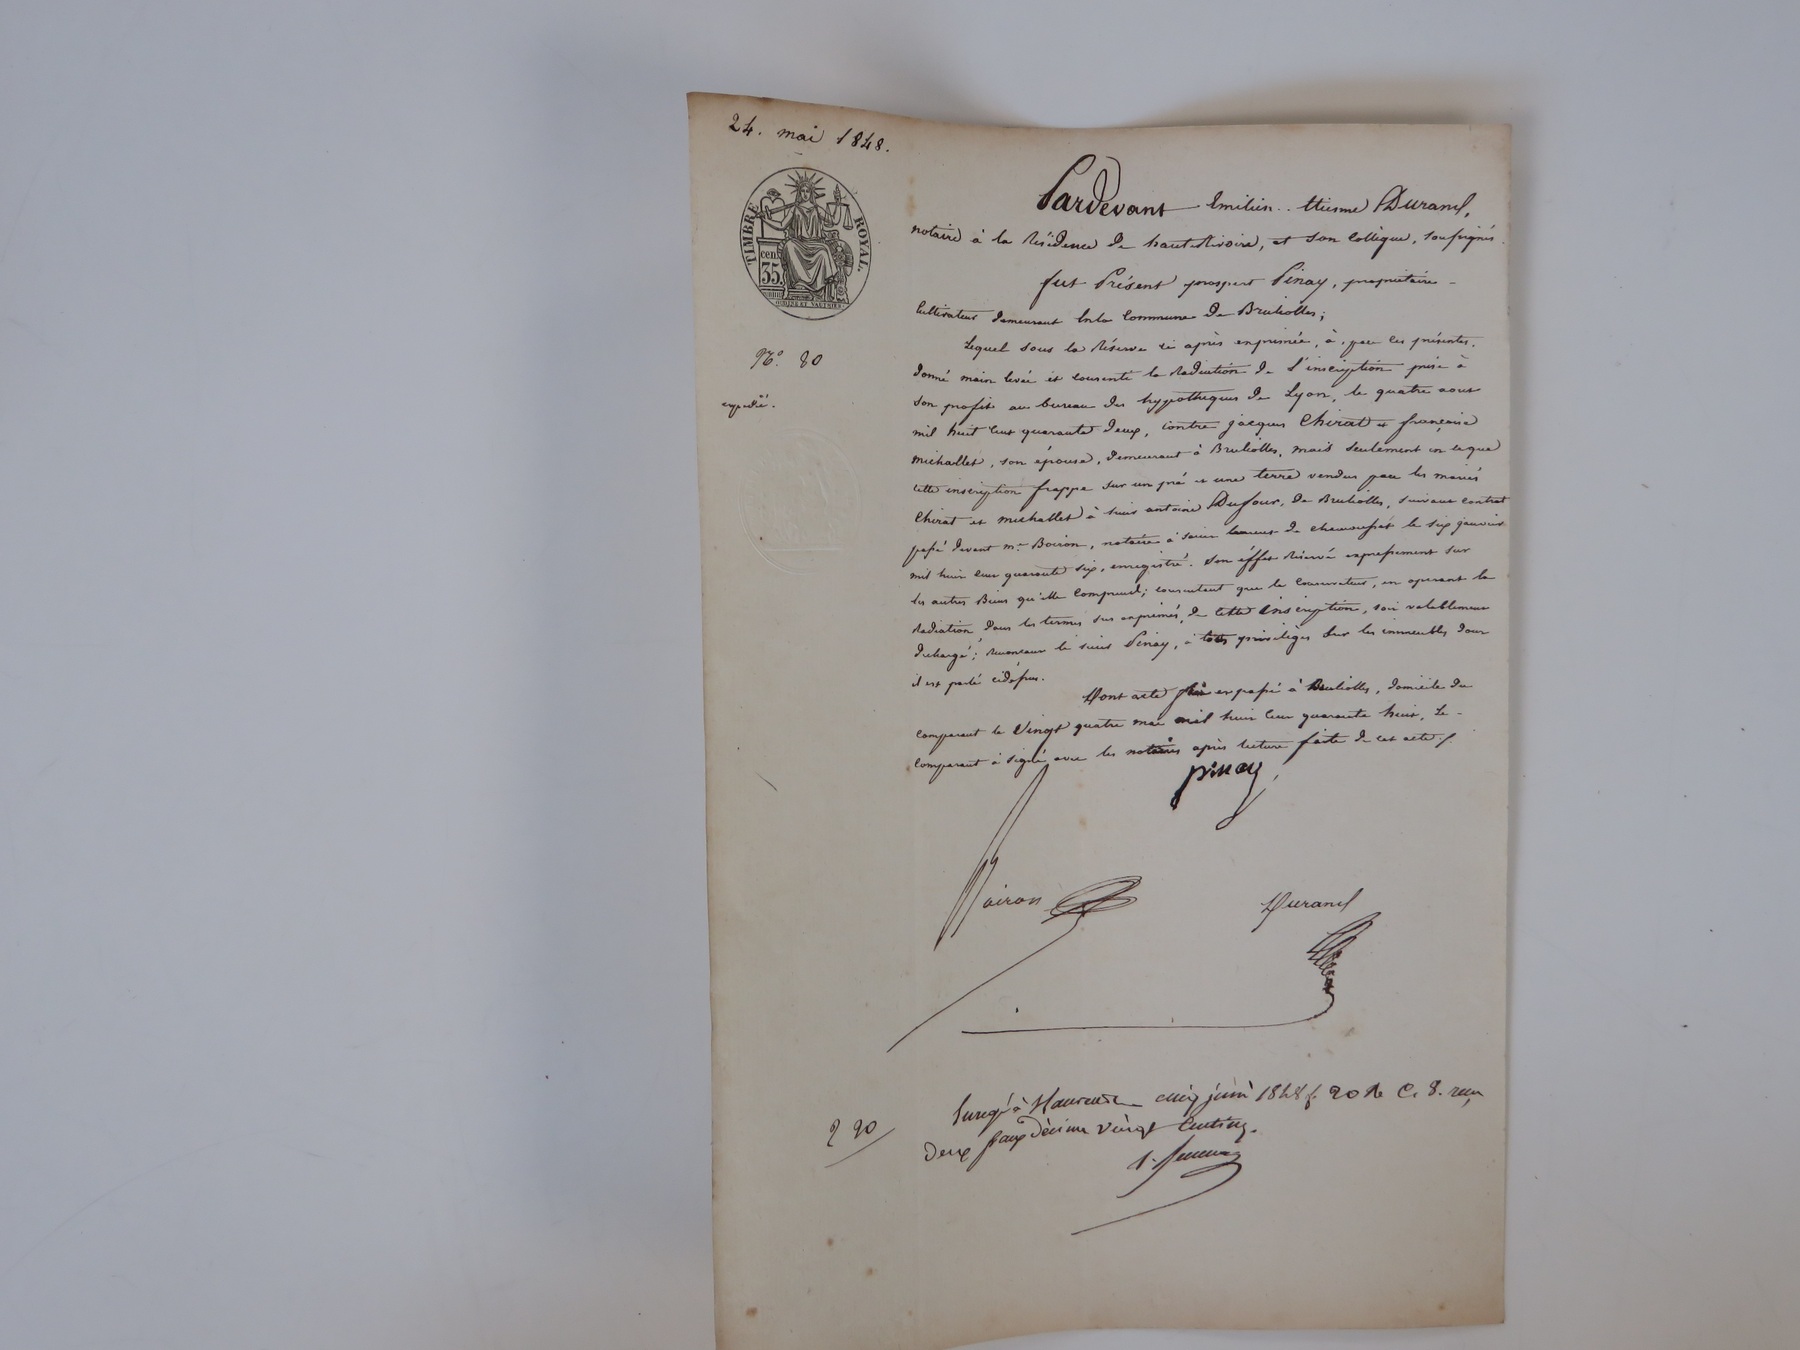 24. mai 1848.
TIMBRE ROYAL.
cent. 35.
N.º 80
expédié.
Pardevant Emilien Etienne Durand,
notaire à la Résidence de hauteRivoire, et son Collègue, soussignés.
fut Présent prospert Pinay, propriétaire
Cultivateur demeurant en la Commune de Brulliolles;
Lequel sous la Réserve ci après exprimée, à, par ces présentes,
donné main levée et consenti la Radiation de l'inscription prise à
son profit au bureau des hypotheques de Lyon, le quatre aout
mil huit cent quarante deux, contre jacques Chirat et françoise
michallet, son épouse, demeurant à Brulliolles, mais seulement en ce que
cette inscription frappe sur un pré et une terre vendus par les mariés
Chirat et michallet à sieur antoine Dufour, de Brulliolles, suivant contrat
passé devant mᵉ Boiron, notaire à saint laurent de chamousset le six janvier
mil huit cent quarante six, enregistré. son éffet Réservé expressement sur
les autres Biens qu'elle Comprend; consentant que le Conservateur, en operant la
Radiation, dans les termes sus exprimés, de cette inscription, soit valablement
déchargé; renonçant le sieur Pinay, à tous privilèges sur les immeubles dont
il est parlé cidessus.
Dont acte fait et passé à Brulliolles, domicile du
comparant le vingt quatre mai mil huit cent quarante huit, Le
comparant à signé avec les notaires après lecture faite de cet acte./.
pinay
Boiron
Durand
2 20
Enregé à cinq juin 1848 fº 20 Rº C. 8. reçu
deux francs décime vingt Centimes.